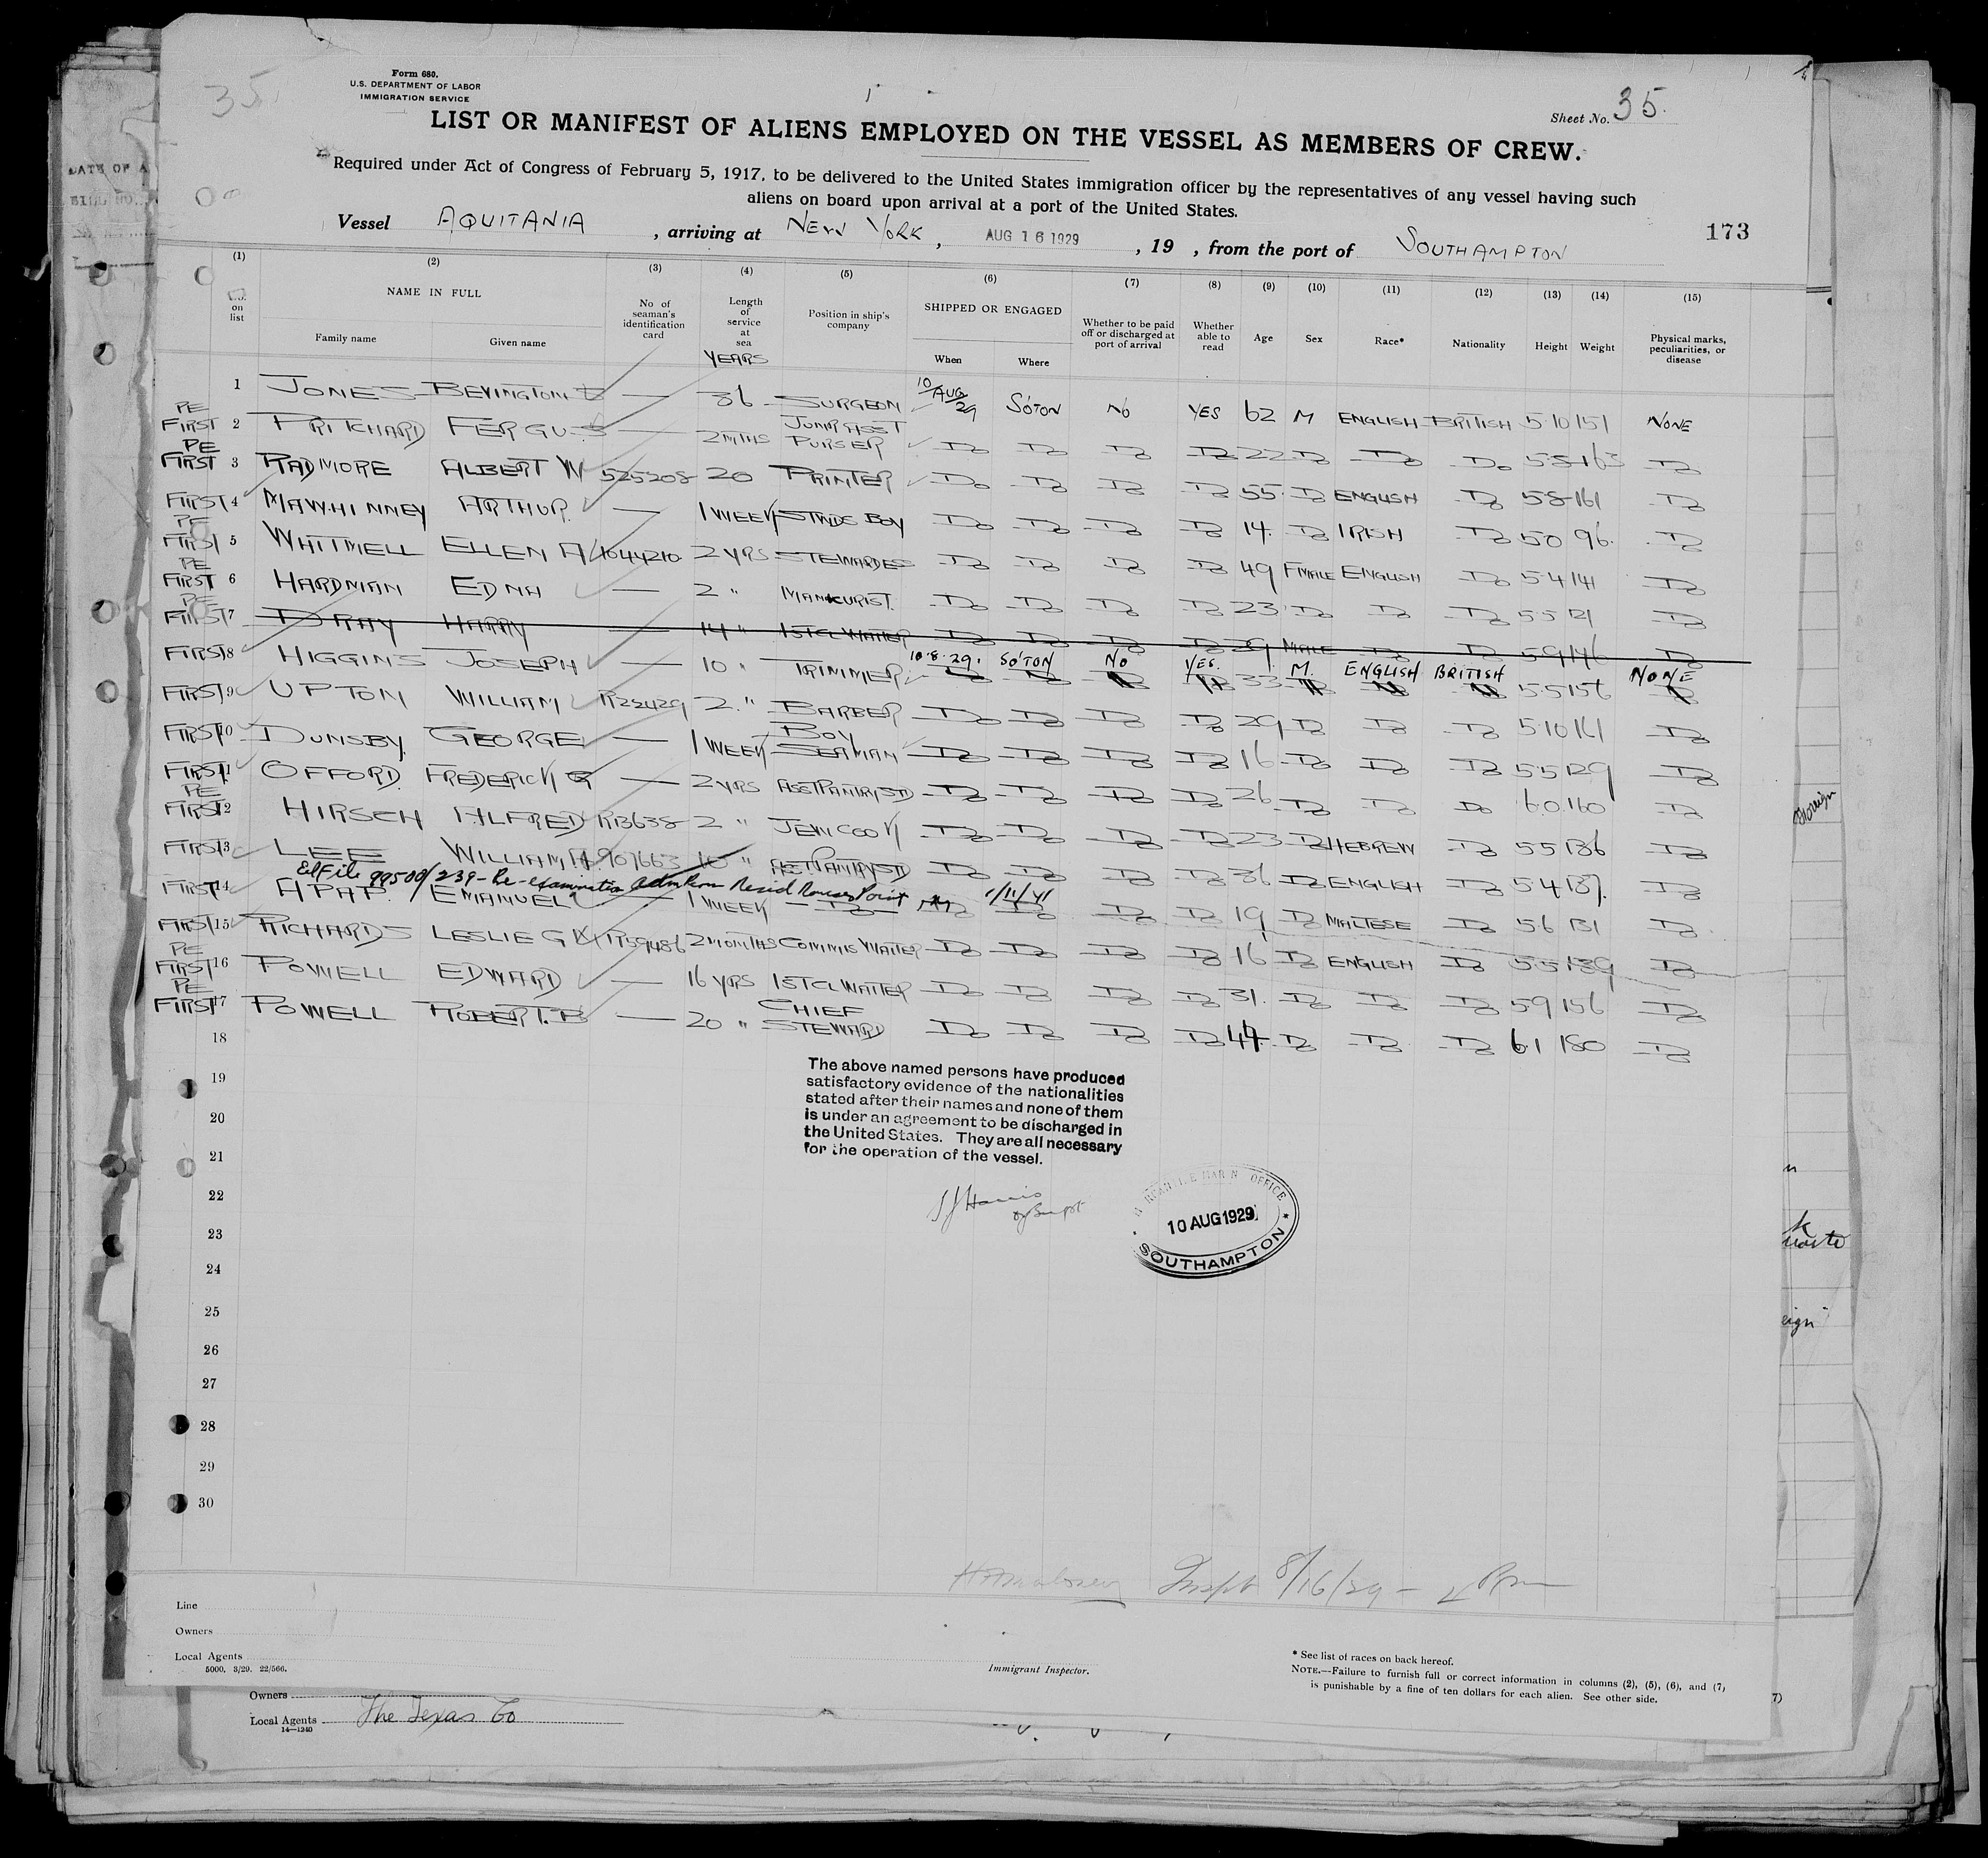 35
Form 680.
U.S. DEPARTMENT OF LABOR
IMMIGRATION SERVICE
Sheet No. 35.
LIST OR MANIFEST OF ALIENS EMPLOYED ON THE VESSEL AS MEMBERS OF CREW.
Required under Act of Congress of February 5, 1917, to be delivered to the United States immigration officer by the representatives of any vessel having such
aliens on board upon arrival at a port of the United States.
Vessel AQUITANIA, arriving at NEW YORK, AUG 16 1929, 19 , from the port of SOUTHAMPTON
173
(1) (2) (3) (4) (5) (6) (7) (8) (9) (10) (11) (12) (13) (14) (15)
No. on list NAME IN FULL Family name Given name No. of seaman's identification card Length of service at sea YEARS Position in ship's company SHIPPED OR ENGAGED When Where Whether to be paid off or discharged at port of arrival Whether able to read Age Sex Race* Nationality Height Weight Physical marks, peculiarities, or disease
1 JONES BEVINGTON — 36 SURGEON 10/AUG/29 SO'TON NO YES 62 M ENGLISH BRITISH 5.10 151 NONE
PE FIRST 2 PRITCHARD FERGUS — 2 MTHS JUNR ASST PURSER Do Do Do Do 22 Do Do Do 5.8 163 Do
PE FIRST 3 RADMORE ALBERT W 525208 20 PRINTER Do Do Do Do 55 Do ENGLISH Do 5.8 161 Do
FIRST 4 MAWHINNEY ARTHUR. — 1 WEEK STWDS BOY Do Do Do Do 14. Do IRISH Do 5.0 96. Do
PE FIRST 5 WHITMELL ELLEN A 1044210 2 YRS STEWARDESS Do Do Do Do 49 FMALE ENGLISH Do 5.4 141 Do
PE FIRST 6 HARDMAN EDNA — 2 " MANICURIST. Do Do Do Do 23 Do Do Do 5.5 121 Do
PE FIRST 7 DRAY HARRY — 14 " 1STCL WAITER Do Do Do Do 39 MALE Do Do 5.9 146 Do
FIRST 8 HIGGINS JOSEPH — 10 " TRIMMER 10.8.29. SO'TON NO YES. 33 M. ENGLISH BRITISH 5.5 156 NONE
FIRST 9 UPTON WILLIAM R22429 2. " BARBER Do Do Do Do 29 Do Do Do 5.10 161 Do
FIRST 10 DUNSBY. GEORGE — 1 WEEK BOY SEAMAN Do Do Do Do 16 Do Do Do 5.5 129 Do
FIRST 11 OFFORD. FREDERICK G — 2 YRS ASST PANTRYSTD Do Do Do Do 26 Do Do Do 6.0. 160 Do
PE FIRST 12 HIRSCH ALFRED R13638 2 " JEW COOK Do Do Do Do 23 Do HEBREW Do 5.5 136 Do
FIRST 13 LEE WILLIAM A. 907663 10 " ASST PANTRYSTD Do Do Do Do 36 Do ENGLISH Do 5.4 137. Do
El File 99500/239 - Re-examination admission Resid Rouses Point 1/11/41
FIRST 14 APAP. EMANUEL — 1 WEEK Do Do Do Do Do 19 Do MALTESE Do 5.6 131 Do
FIRST 15 RICHARDS LESLIE G R59486 2 MONTHS COMMIS WAITER Do Do Do Do 16 Do ENGLISH Do 5.5 139 Do
PE FIRST 16 POWELL EDWARD — 16 YRS 1STCL WAITER Do Do Do Do 31. Do Do Do 5.9 156 Do
PE FIRST 17 POWELL ROBERT. B — 20 " CHIEF STEWARD Do Do Do Do 44. Do Do Do 6.1 180 Do
18
19
20
21
22
23
24
25
26
27
28
29
30
The above named persons have produced
satisfactory evidence of the nationalities
stated after their names and none of them
is under an agreement to be discharged in
the United States. They are all necessary
for the operation of the vessel.
MERCANTILE MARINE OFFICE
10 AUG 1929
SOUTHAMPTON
Inspt 8/16/29
Line
Owners
Local Agents
5000. 3/29. 22/566.
Immigrant Inspector.
* See list of races on back hereof.
NOTE.—Failure to furnish full or correct information in columns (2), (5), (6), and (7)
is punishable by a fine of ten dollars for each alien. See other side.
Owners
Local Agents The Texas Co
14—1240